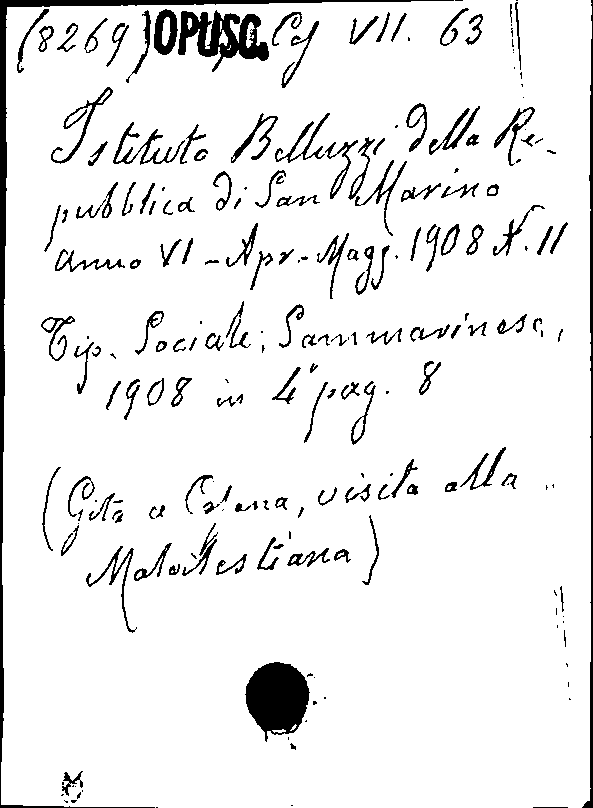 (8269) OPUSC. Cs VII. 63
Istituto Belluzzi della Re-
pubblica di San Marino
anno VI - Apr.- Magg. 1908 N. 11
Tip. Sociale; Sammarinese,
1908 in 4° pag. 8
(Gita a Cesena, visita alla
Malatestiana)